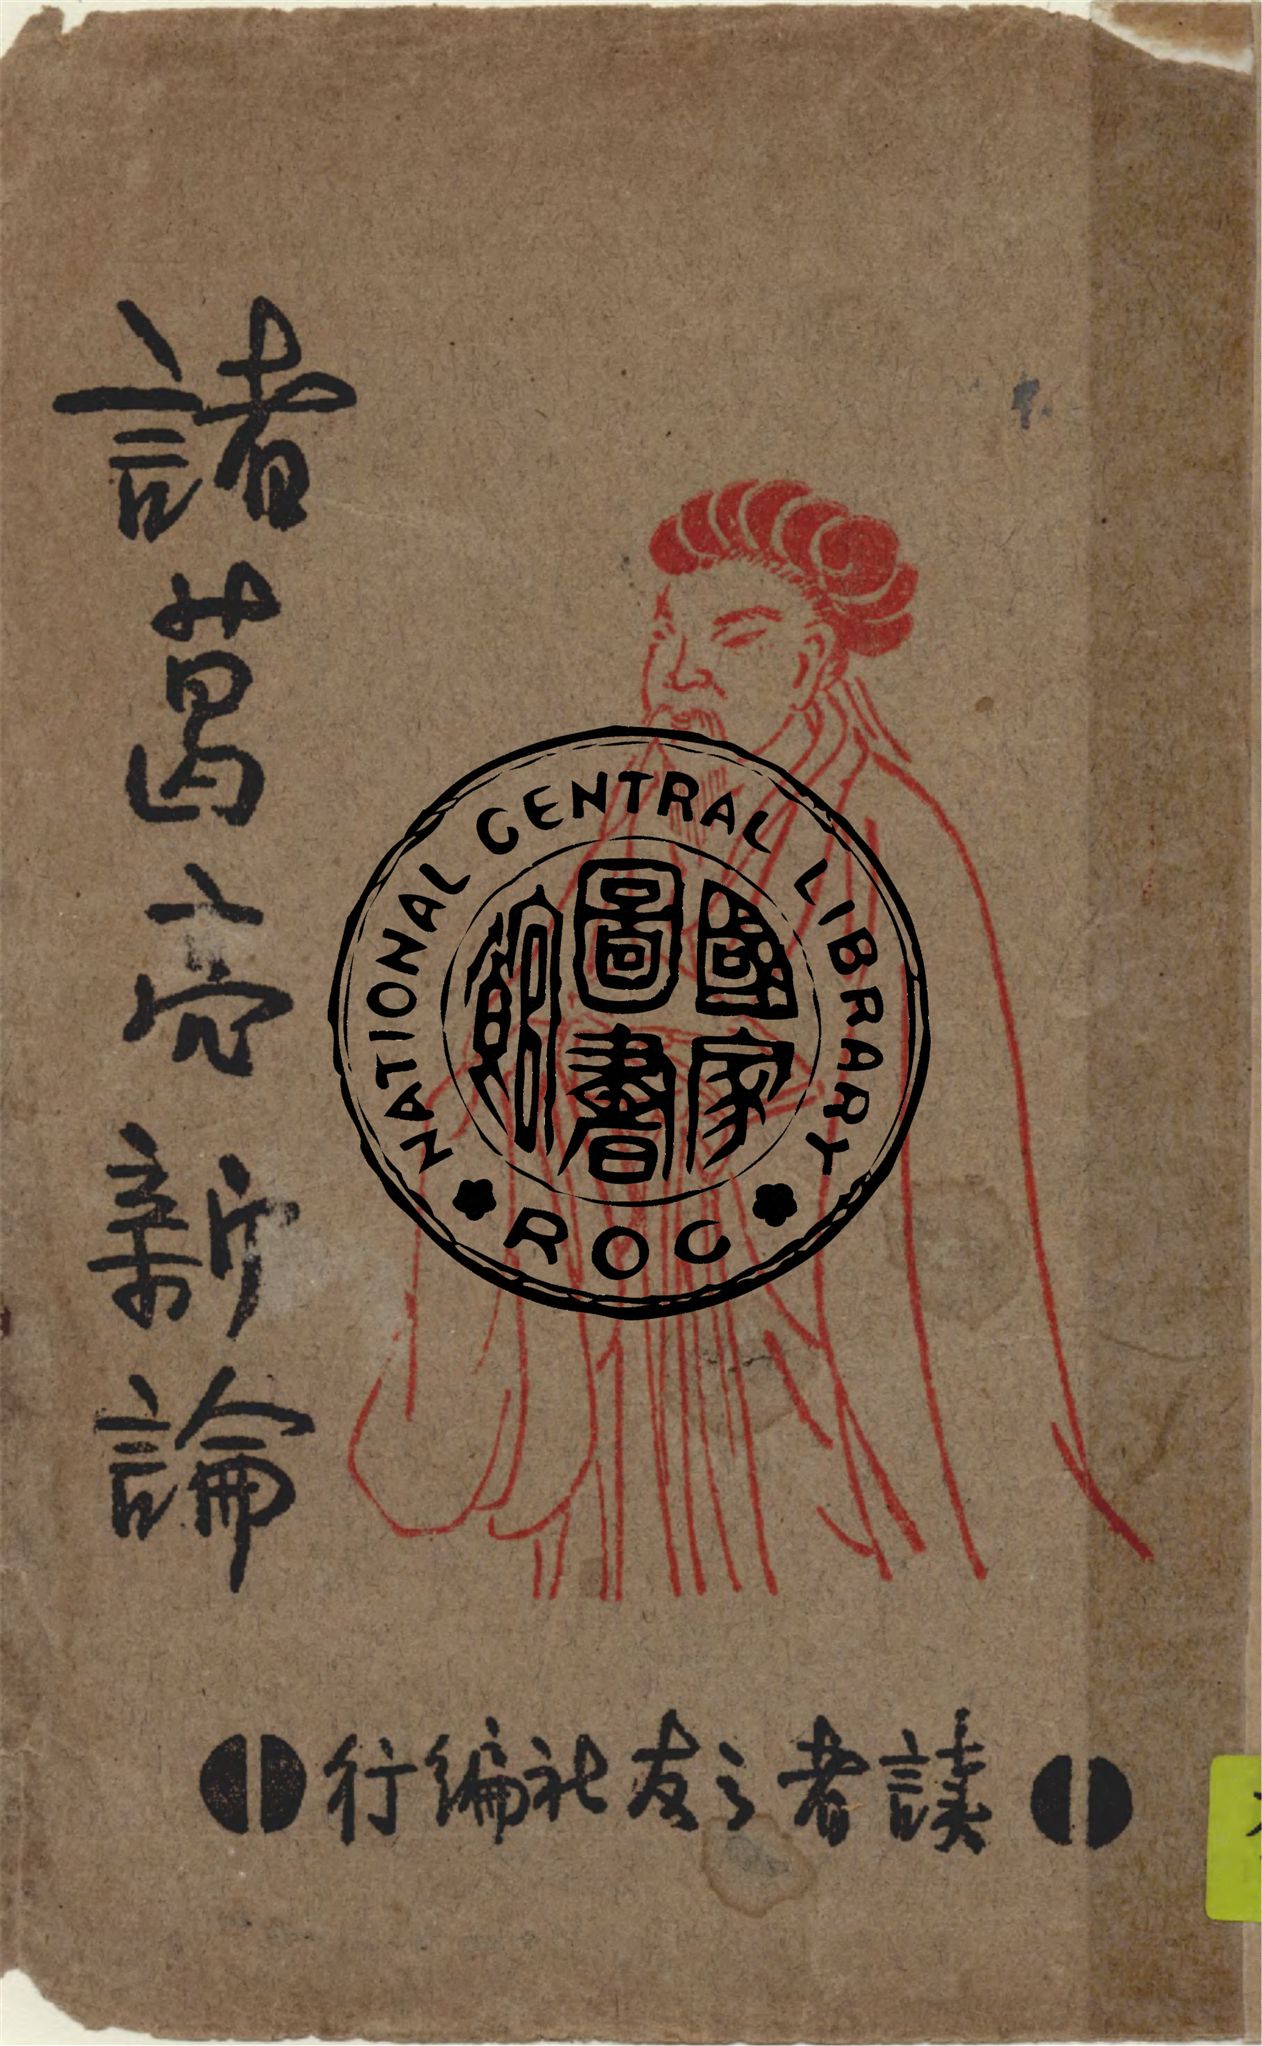 諸葛亮新論
讀者之友社編行
NATIONAL CENTRAL LIBRARY
ROC
國家圖書館